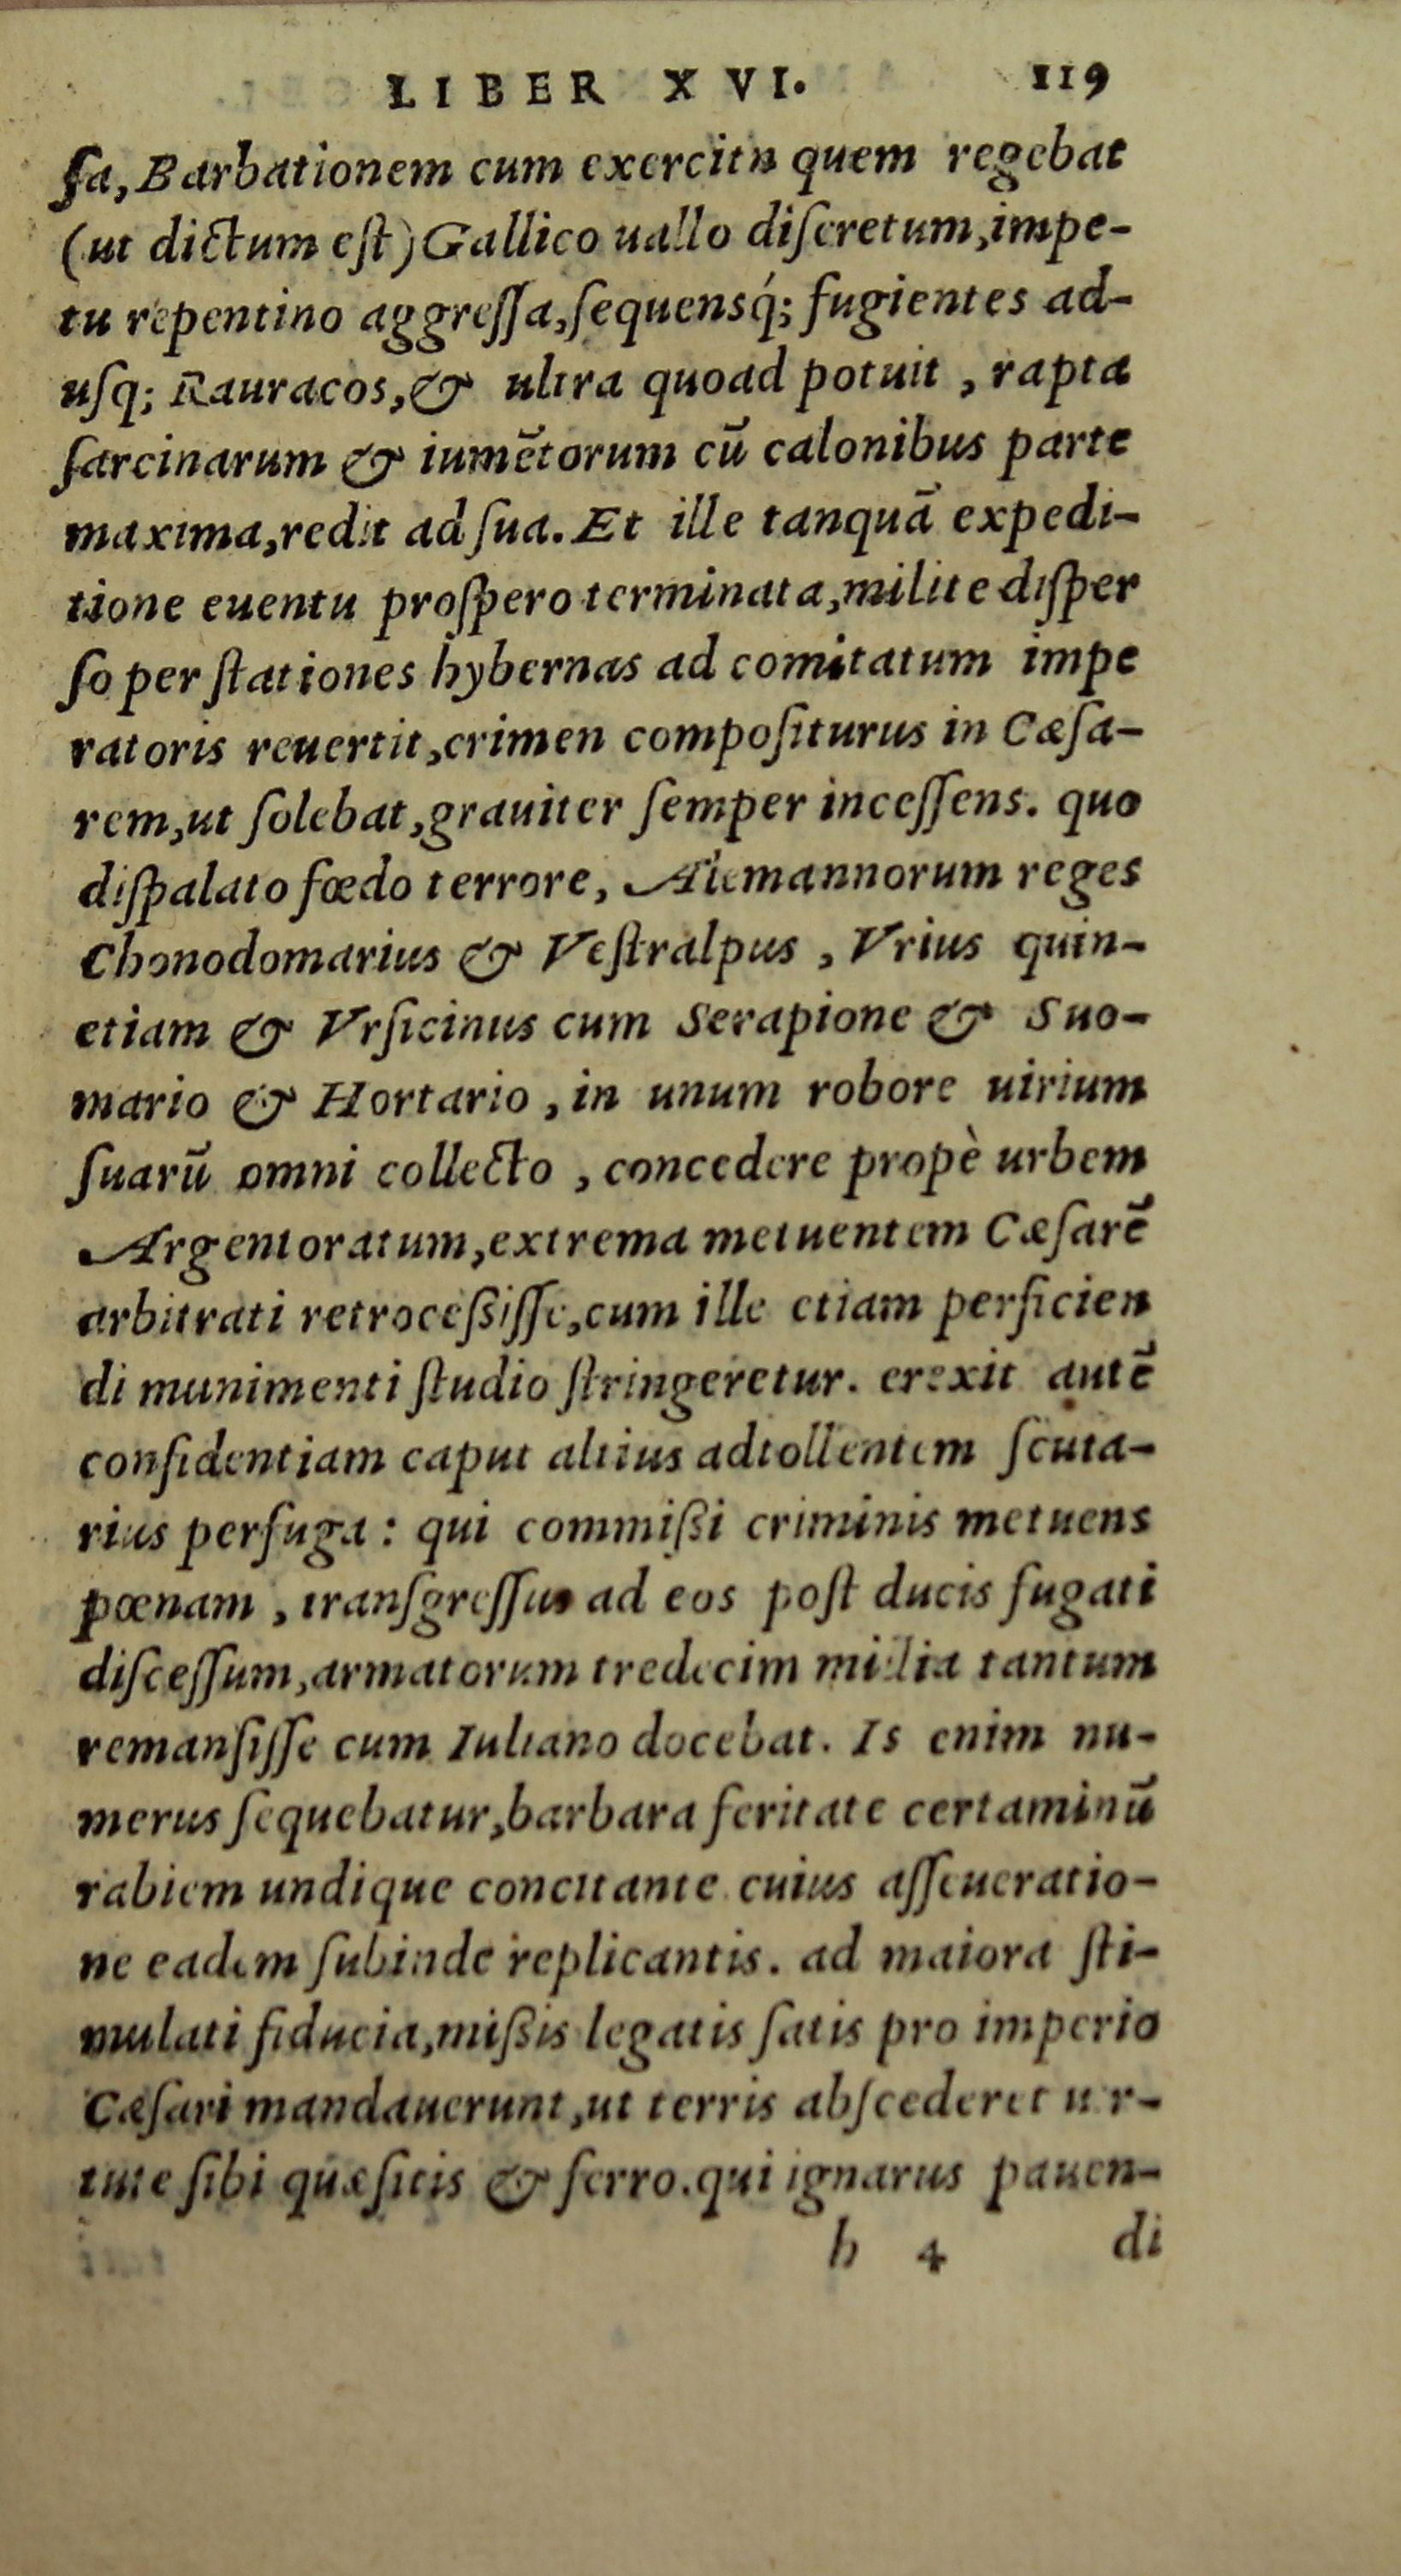 LIBER XVI. 119
ſa, Barbationem cum exercitu quem regebat
(ut dictum eſt) Gallico uallo diſcretum, impe-
tu repentino aggreſſa, ſequensq́; fugientes ad-
uſq; Rauracos, & ultra quoad potuit, rapta
ſarcinarum & iumẽtorum cũ calonibus parte
maxima, redit ad ſua. Et ille tanquã expedi-
tione euentu proſpero terminata, milite diſper
ſo per ſtationes hybernas ad comitatum impe
ratoris reuertit, crimen compoſiturus in Cæſa-
rem, ut ſolebat, grauiter ſemper inceſſens. quo
diſpalato fœdo terrore, Alemannorum reges
Chonodomarius & Veſtralpus, Vrius quin-
etiam & Vrſicinus cum Serapione & Suo-
mario & Hortario, in unum robore uirium
ſuarũ omni collecto, concedere propè urbem
Argentoratum, extrema metuentem Cæſarẽ
arbitrati retroceßiſſe, cum ille etiam perficien
di munimenti ſtudio ſtringeretur. erexit autẽ
confidentiam caput altius adtollentem ſcuta-
rius perfuga: qui commißi criminis metuens
pœnam, tranſgreſſus ad eos poſt ducis fugati
diſceſſum, armatorum tredecim millia tantum
remanſiſſe cum Iuliano docebat. Is enim nu-
merus ſequebatur, barbara feritate certaminũ
rabiem undique concitante cuius aſſeueratio-
ne eadem ſubinde replicantis. ad maiora ſti-
mulati fiducia, mißis legatis ſatis pro imperio
Cæſari mandauerunt, ut terris abſcederet uir-
tute ſibi quæſitis & ferro. qui ignarus pauen-
h 4 di